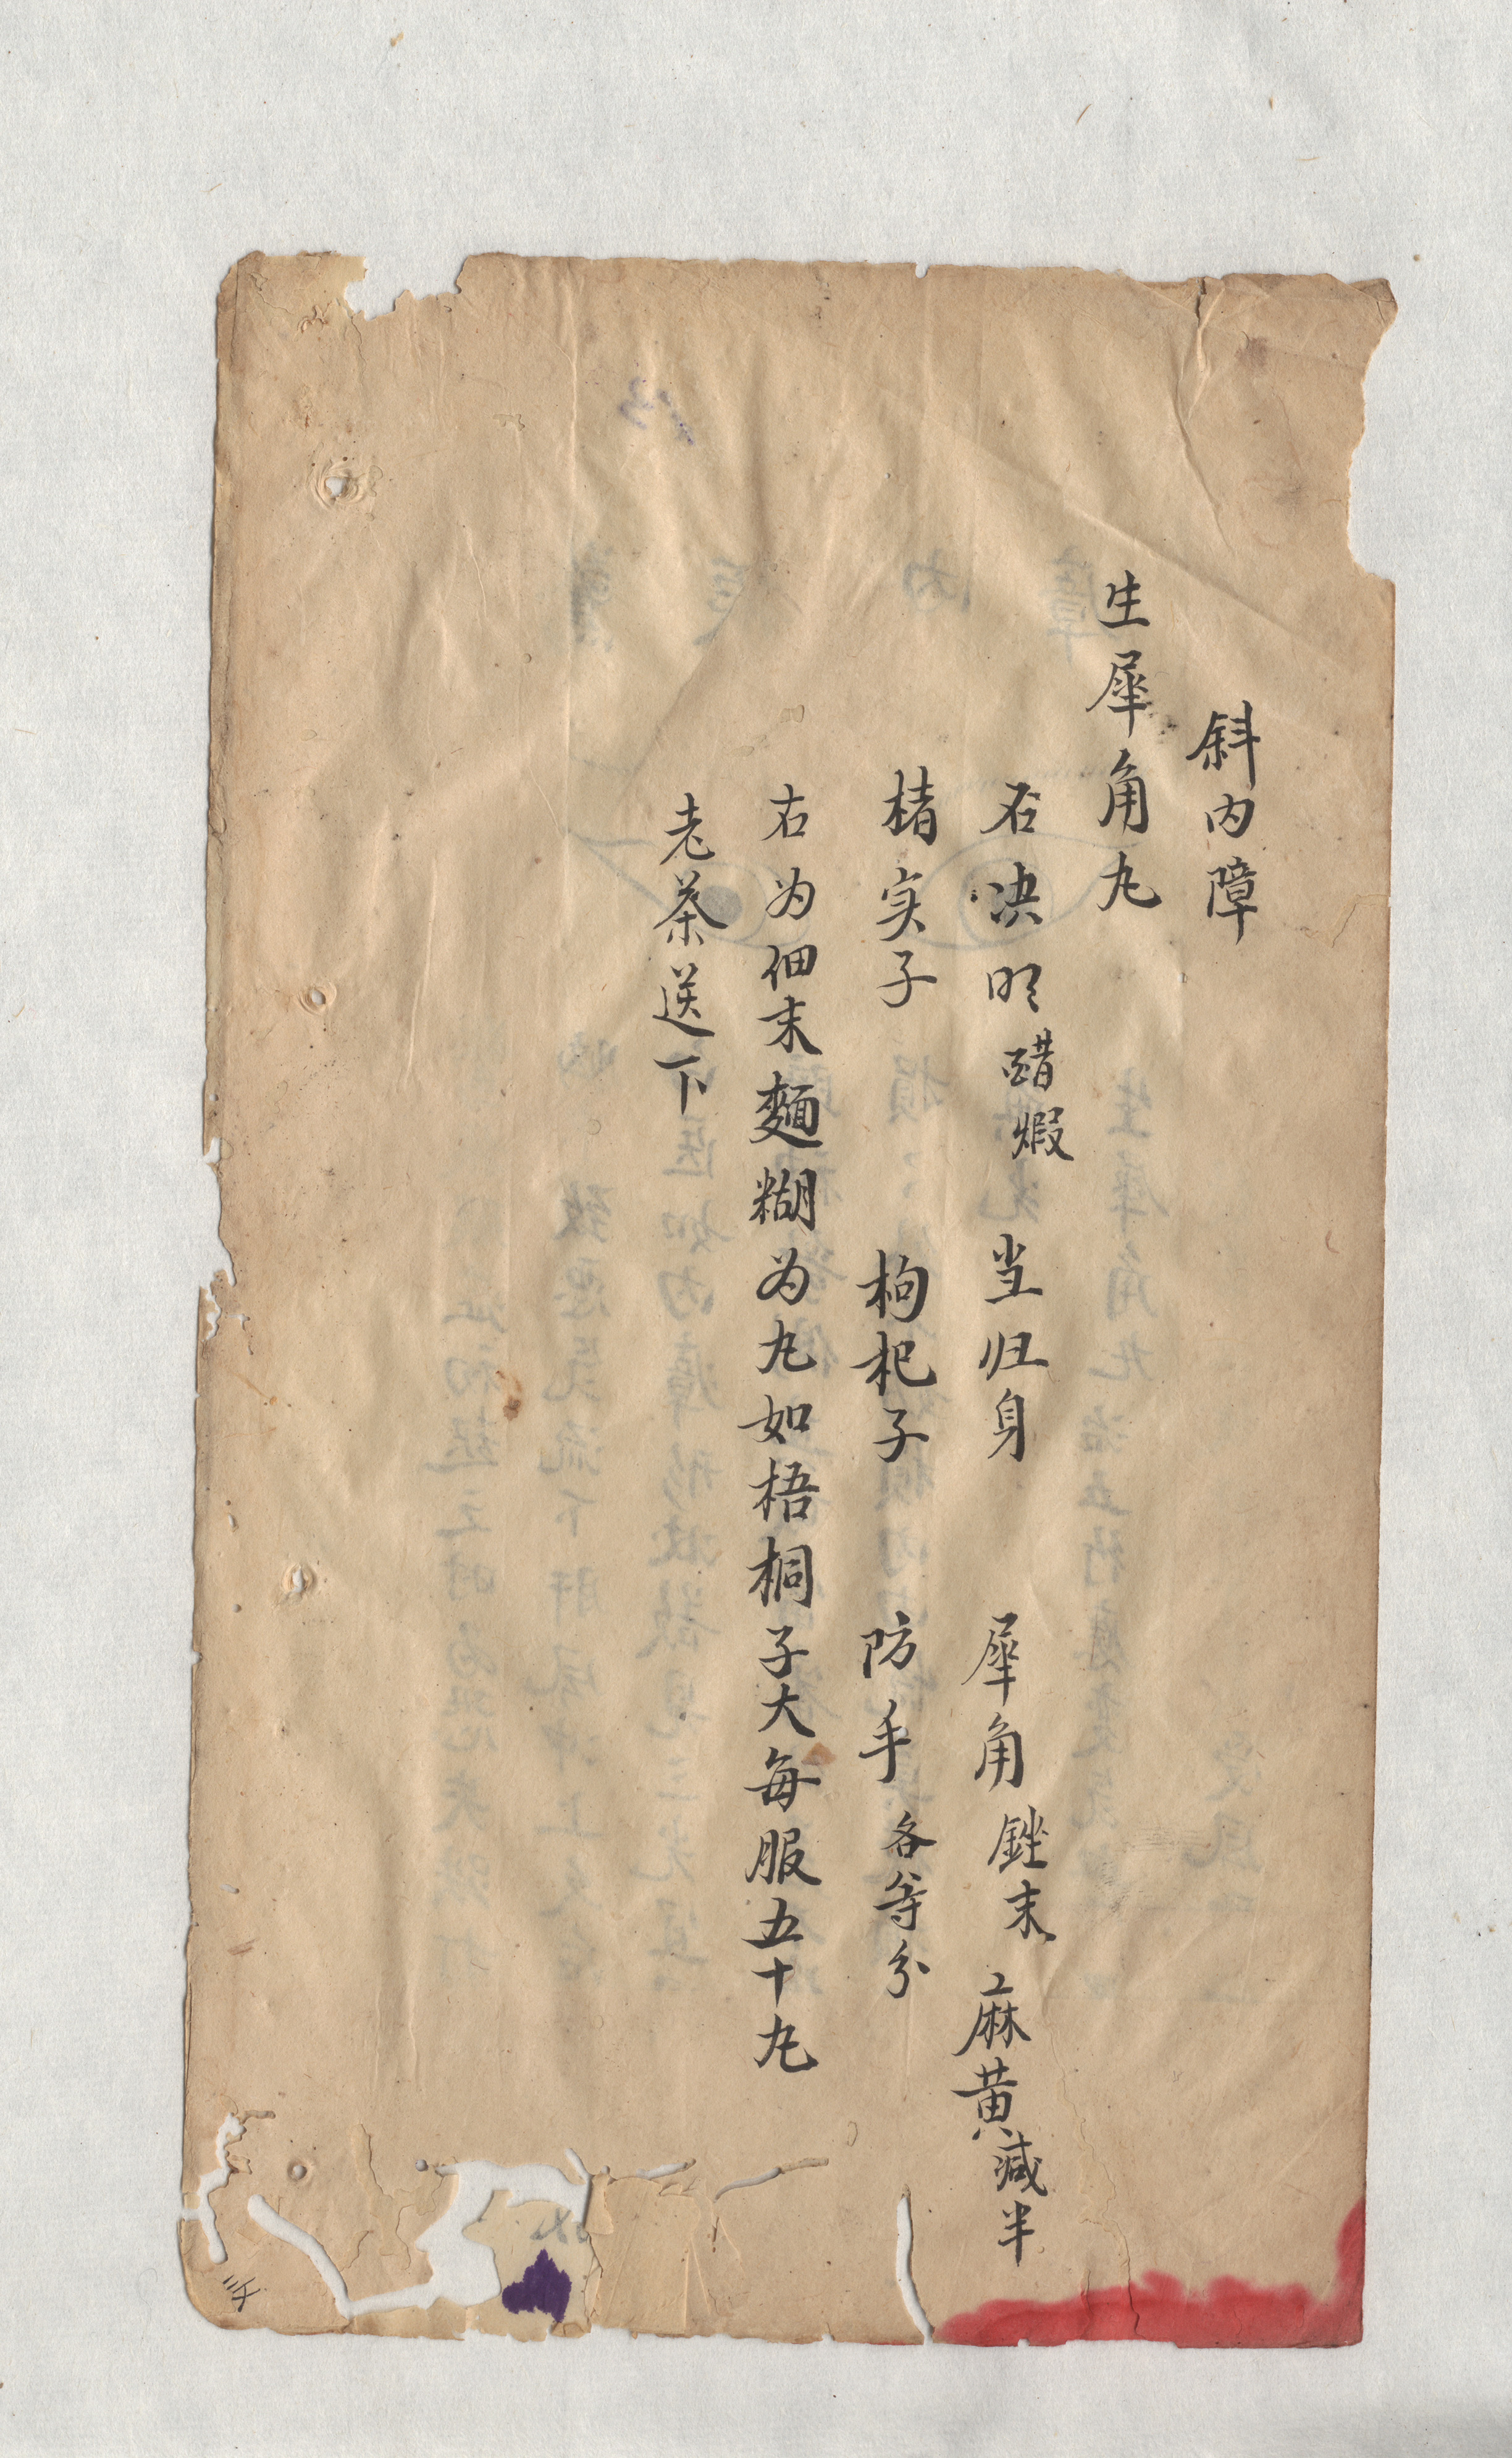 斜内障
生犀角丸
石决明醋煆　当归身　犀角锉末　麻黄减半
楮实子　枸杞子　防手各等分
右为细末麵糊为丸如梧桐子大每服五十丸
老茶送下